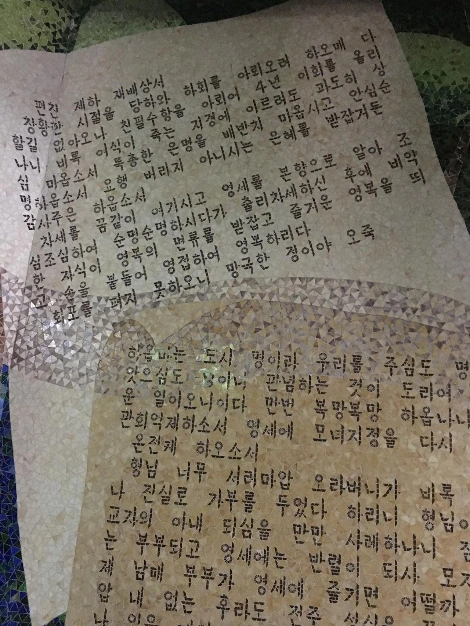 편진 제하 재배상서 하회를 아뢰오려 하오매 다
창황한 시절을 당하와 아뢰어 4년 이회를 올리
할 길 없아오나 친필수함을 지경에 이르러도 과도히 상
나니 비록 이식이 죽는 은명을 배반치 마옵시고 안심순
심 마옵소서 특총한 버리지 아니시는 은혜를 받잡거든
명하사 요행
감사주은 하옵소서 여기시고 영세를 본향으로 알아 조
자세를 꿈같이 순명하시다가 출리차세하신 후에 비약
심 조심하여 순명 면류를 받잡고 즐거운 영복을 띄
한 자식이 영복의 영접하여 영복하리다
고 손을 붙들어 못하오니 망국한 경이야 오죽
회포를 펴지
하올마는 도시 명이라 우리를 주심도 명
앗으심도 관념하는 것이 도리어
운 일이오니이다 만번 복망복망 하옵나니
관회억제하소서 영세에 모녀지정을 다시
온전케 하오소서
형님 너무 서러마압 오라버니가 비록
나 진실로 가부를 두었다 하리니 형님이
교자의 아내 되심을 만만 사례하나니
는 부부되고 영세에는 반렬이 되사 모자
제 남매 부부가 영세에 즐기면 어떨까
압 내 없는 후라도 전주